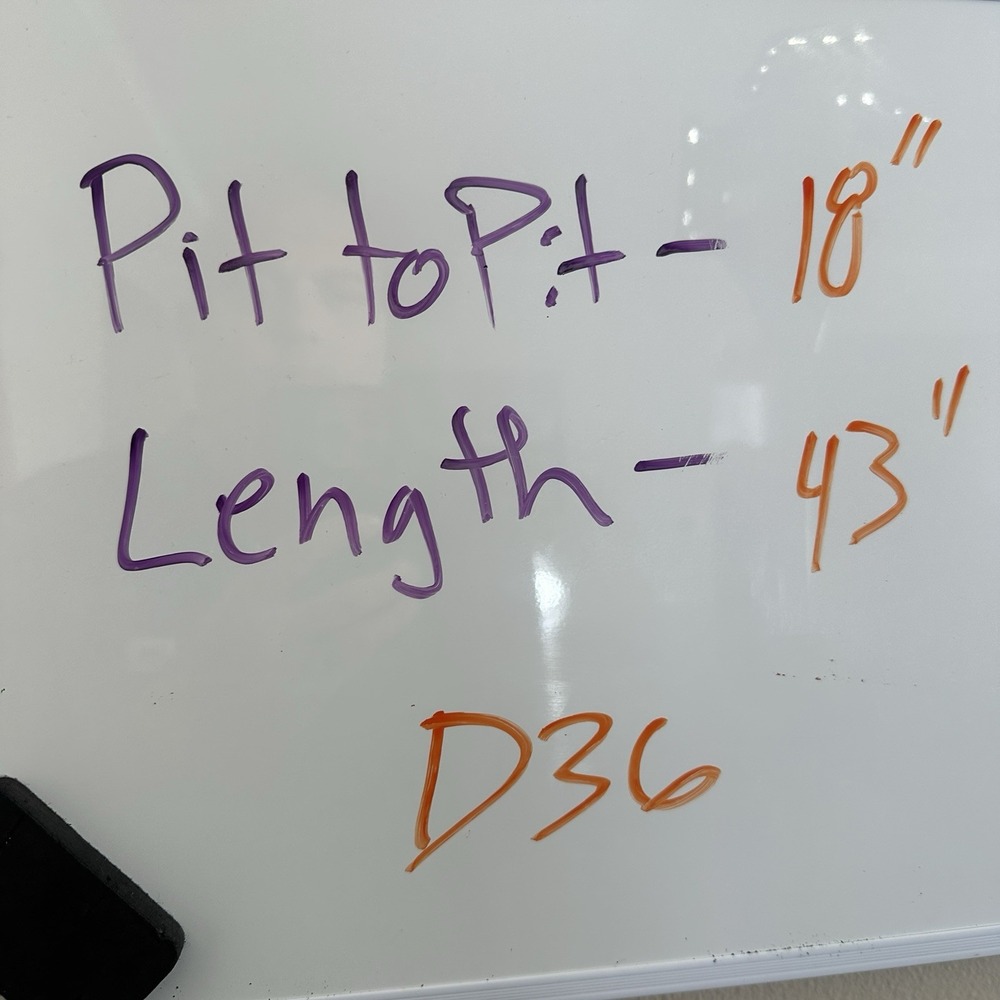 Pit to Pit - 18"
Length - 43"
D36